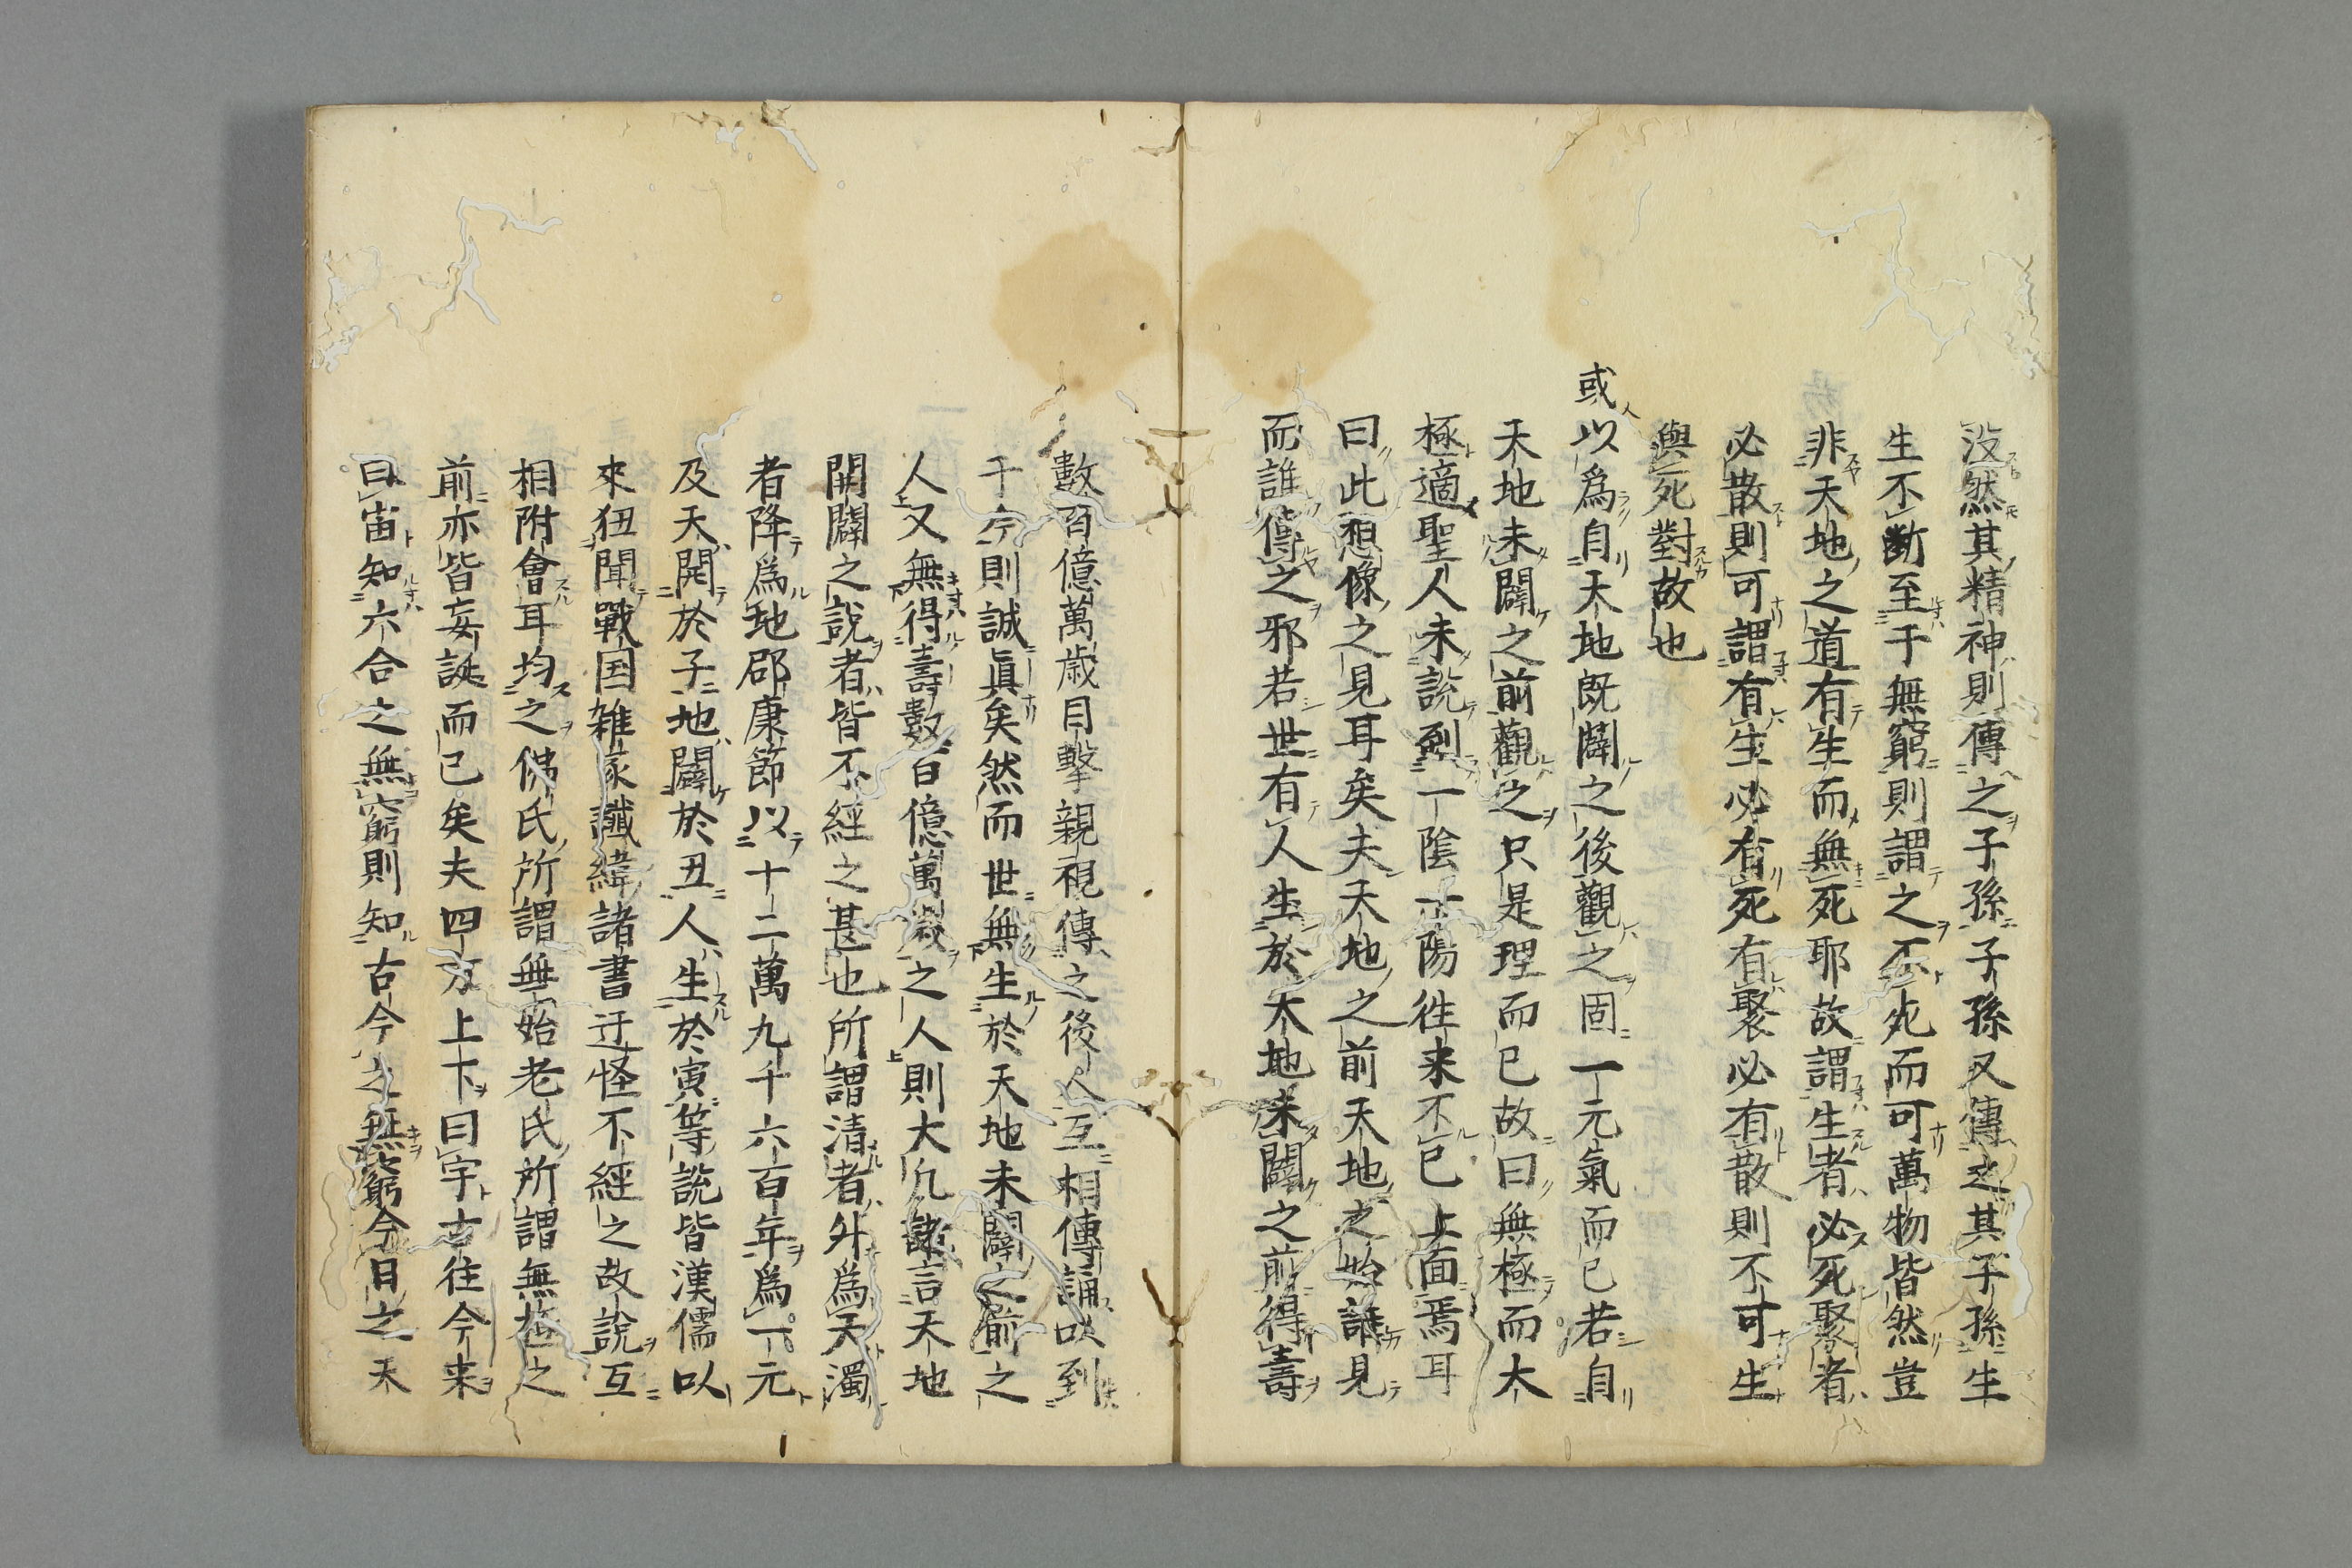 没然其精神則傳之子孫子孫又傳之其子孫生
生不断至于無窮則謂之不死而可萬物皆然豈
非天地之道有生而無死耶故謂生者必死聚者
必散則可謂有生必有死有聚必有散則不可生
與死對故也
或以爲自天地既闢之後觀之固一元氣而已若自
天地未闢之前觀之只是理而已故曰無極而太
極適聖人未說到一陰一陽徃来不已上面焉耳
曰此想像之見耳矣夫天地之前天地之始誰見
而誰傳之邪若世有人生於天地未闢之前得壽
數百億萬歳目擊親視傳之後人互相傳誦以到
于今則誠眞矣然而世無生於天地未闢之前之
人又無得壽數百億萬歳之人則大凡諸言天地
開闢之說者皆不經之甚也所謂清者外爲天濁
者降爲地邵康節以十二萬九千六百年爲一元
及天開於子地闢於丑人生於寅等說皆漢儒以
來狃聞戰国雑家讖緯諸書迂怪不經之故說互
相附會耳均之佛氏所謂無始老氏所謂無極之
前亦皆妄誕而已矣夫四方上下曰宇古往今来
曰宙知六合之無窮則知古今之無窮今日之天